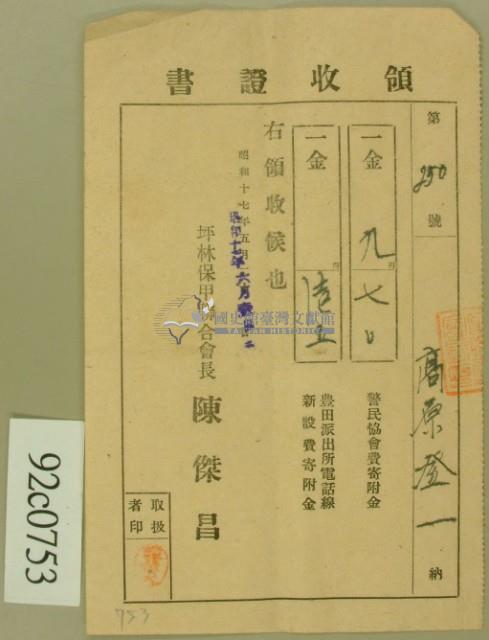 領收證書
第250號
高原登一 納
一金 九七〇
警民協會費寄附金
一金
豊田派出所電話線
新設費寄附金
右領收候也
昭和十七年五月
昭和十七年六月
坪林保甲聯合會長 陳傑昌
取扱
者印
國史館臺灣文獻館
TAIWAN HISTORICA
92c0753
753